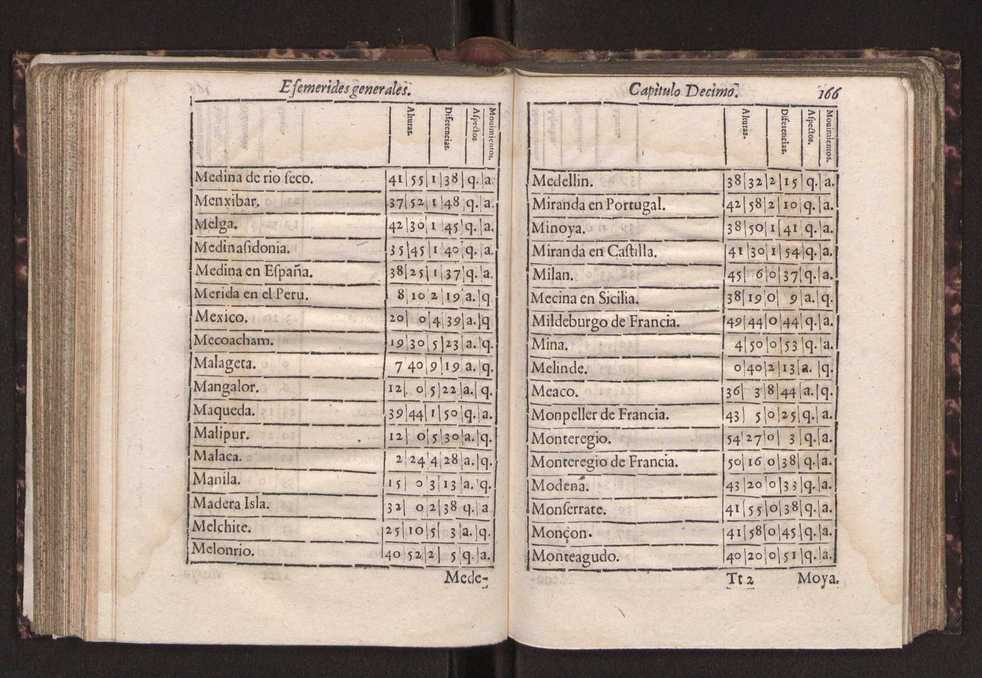 Efemerides generales.
Alturas. Diferencias. Aspectos. Mouimientos.
Medina de rio seco. 41 55 1 38 q. a.
Menxibar. 37 52 1 48 q. a.
Melga. 42 30 1 45 q. a.
Medinasidonia. 35 45 1 40 q. a.
Medina en España. 38 25 1 37 q. a.
Merida en el Peru. 8 10 2 19 a. q.
Mexico. 20 0 4 39 a. q
Mecoacham. 19 30 5 23 a. q.
Malageta. 7 40 9 19 a. q.
Mangalor. 12 0 5 22 a. q.
Maqueda. 39 44 1 50 q. a.
Malipur. 12 0 5 30 a. q.
Malaca. 2 24 4 28 a. q.
Manila. 15 0 3 13 a. q.
Madera Isla. 32 0 2 38 q. a
Melchite. 25 10 5 3 a. q.
Melonrio. 40 52 2 5 q. a.
Mede-
Capitulo Decimo. 166
Alturas. Diferencias. Aspectos. Mouimientos.
Medellin. 38 32 2 15 q. a.
Miranda en Portugal. 42 58 2 10 q. a.
Minoya. 38 50 1 41 q. a.
Miranda en Castilla. 41 30 1 54 q. a.
Milan. 45 6 0 37 q. a.
Mecina en Sicilia. 38 19 0 9 a. q.
Mildeburgo de Francia. 49 44 0 44 q. a.
Mina. 4 50 0 53 q. a.
Melinde. 0 40 2 13 a. q.
Meaco. 36 3 8 44 a. q.
Monpeller de Francia. 43 5 0 25 q. a.
Monteregio. 54 27 0 3 q. a.
Monteregio de Francia. 50 16 0 38 q. a.
Modena. 43 20 0 33 q. a.
Monserrate. 41 55 0 38 q. a.
Monçon. 41 58 0 45 q. a.
Monteagudo. 40 20 0 51 q. a.
Tt 2 Moya.